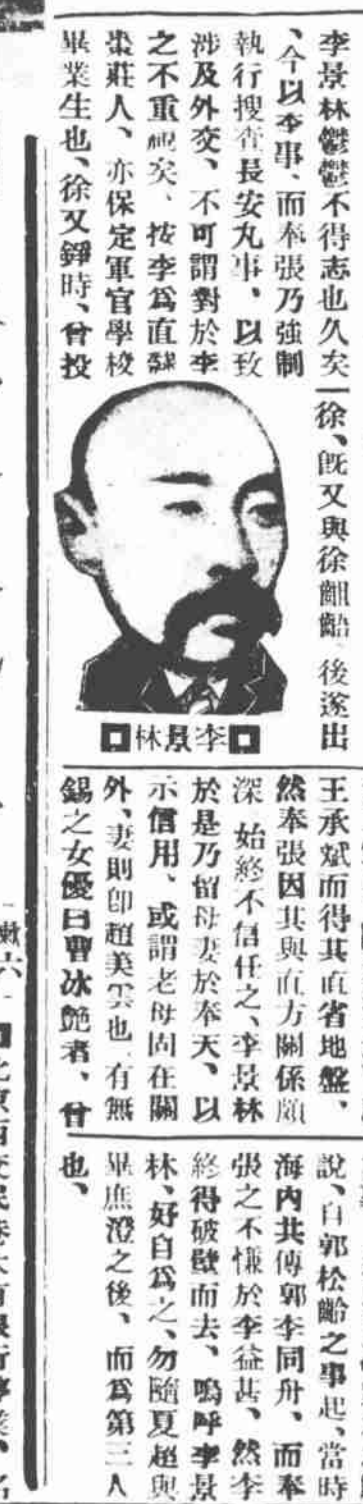 李景林鬱鬱不得志也久矣
、今以李事、而奉張乃強制
執行搜查長安丸事、以致
涉及外交、不可謂對於李
之不重視矣、按李爲直隸
棗莊人、亦保定軍官學校
畢業生也、徐又錚時、曾投
徐、旣又與徐齟齬、後遂出
李景林
王承斌而得其直省地盤、
然奉張因其與直方關係頗
深 始終不信任之、李景林
於是乃留母妻於奉天、以
示信用、或謂老母固在關
外、妻則卽趙美雲也 有無
錫之女優曰曹冰艷者、曾
說、自郭松齡之事起、當時
海內共傳郭李同舟、而奉
張之不慊於李益甚、然李
終得破壁而去、嗚呼李景
林、好自爲之、勿隨夏超與
畢庶澄之後、而爲第三人
也、